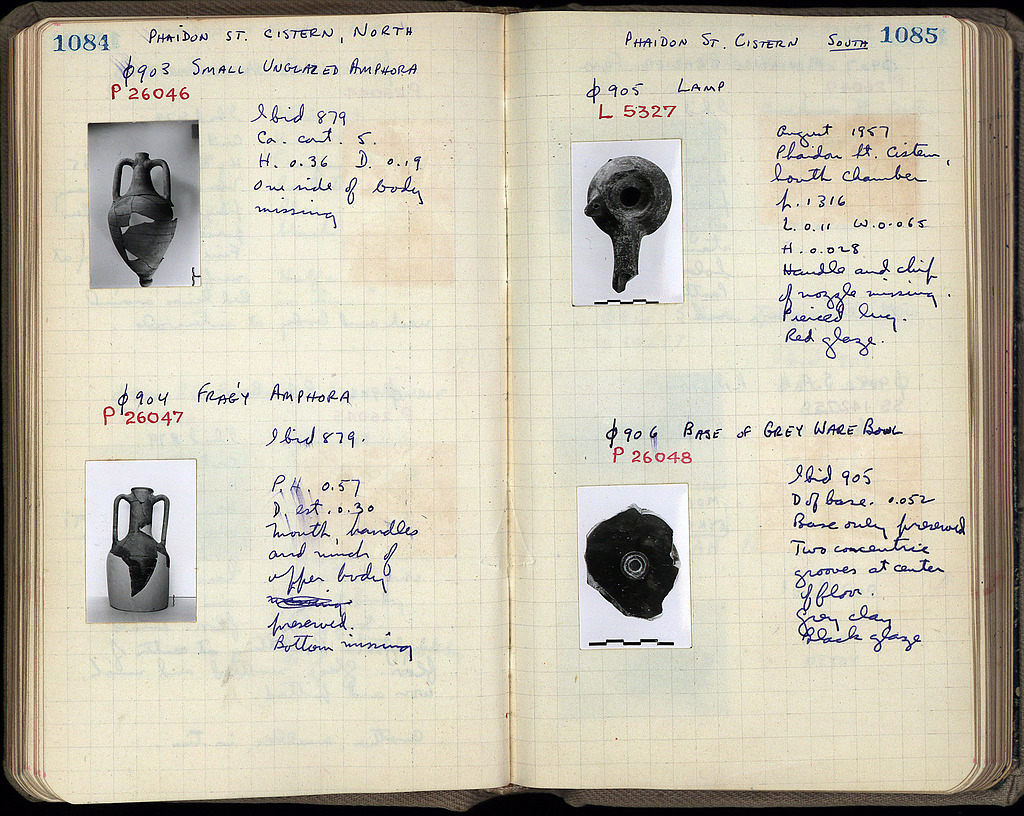 1084
PHAIDON ST. CISTERN, NORTH
φ903 SMALL UNGLAZED AMPHORA
P 26046
Ibid 879
Ca. cont. 5.
H. 0.36 D. 0.19
One side of body
missing
φ904 FRAG'Y AMPHORA
P 26047
Ibid 879.
P.H. 0.57
D. est. 0.30
Mouth, handles
and much of
upper body
preserved.
Bottom missing
PHAIDON ST. CISTERN SOUTH
1085
φ905 LAMP
L 5327
August 1957
Phaidon St. Cistern,
South Chamber
p. 1316
L. 0.11 W. 0.065
H. 0.028
Handle and chip
of nozzle missing.
Pierced lug.
Red glaze.
φ906 BASE OF GREY WARE BOWL
P 26048
Ibid 905
D of base. 0.052
Base only preserved
Two concentric
grooves at center
of floor.
Grey clay
Black glaze